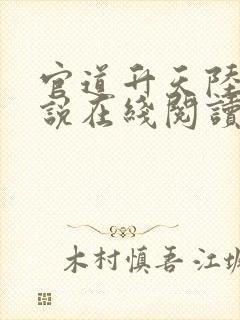 官道升天陸
說在綫閱讀
木村慎吾·江城